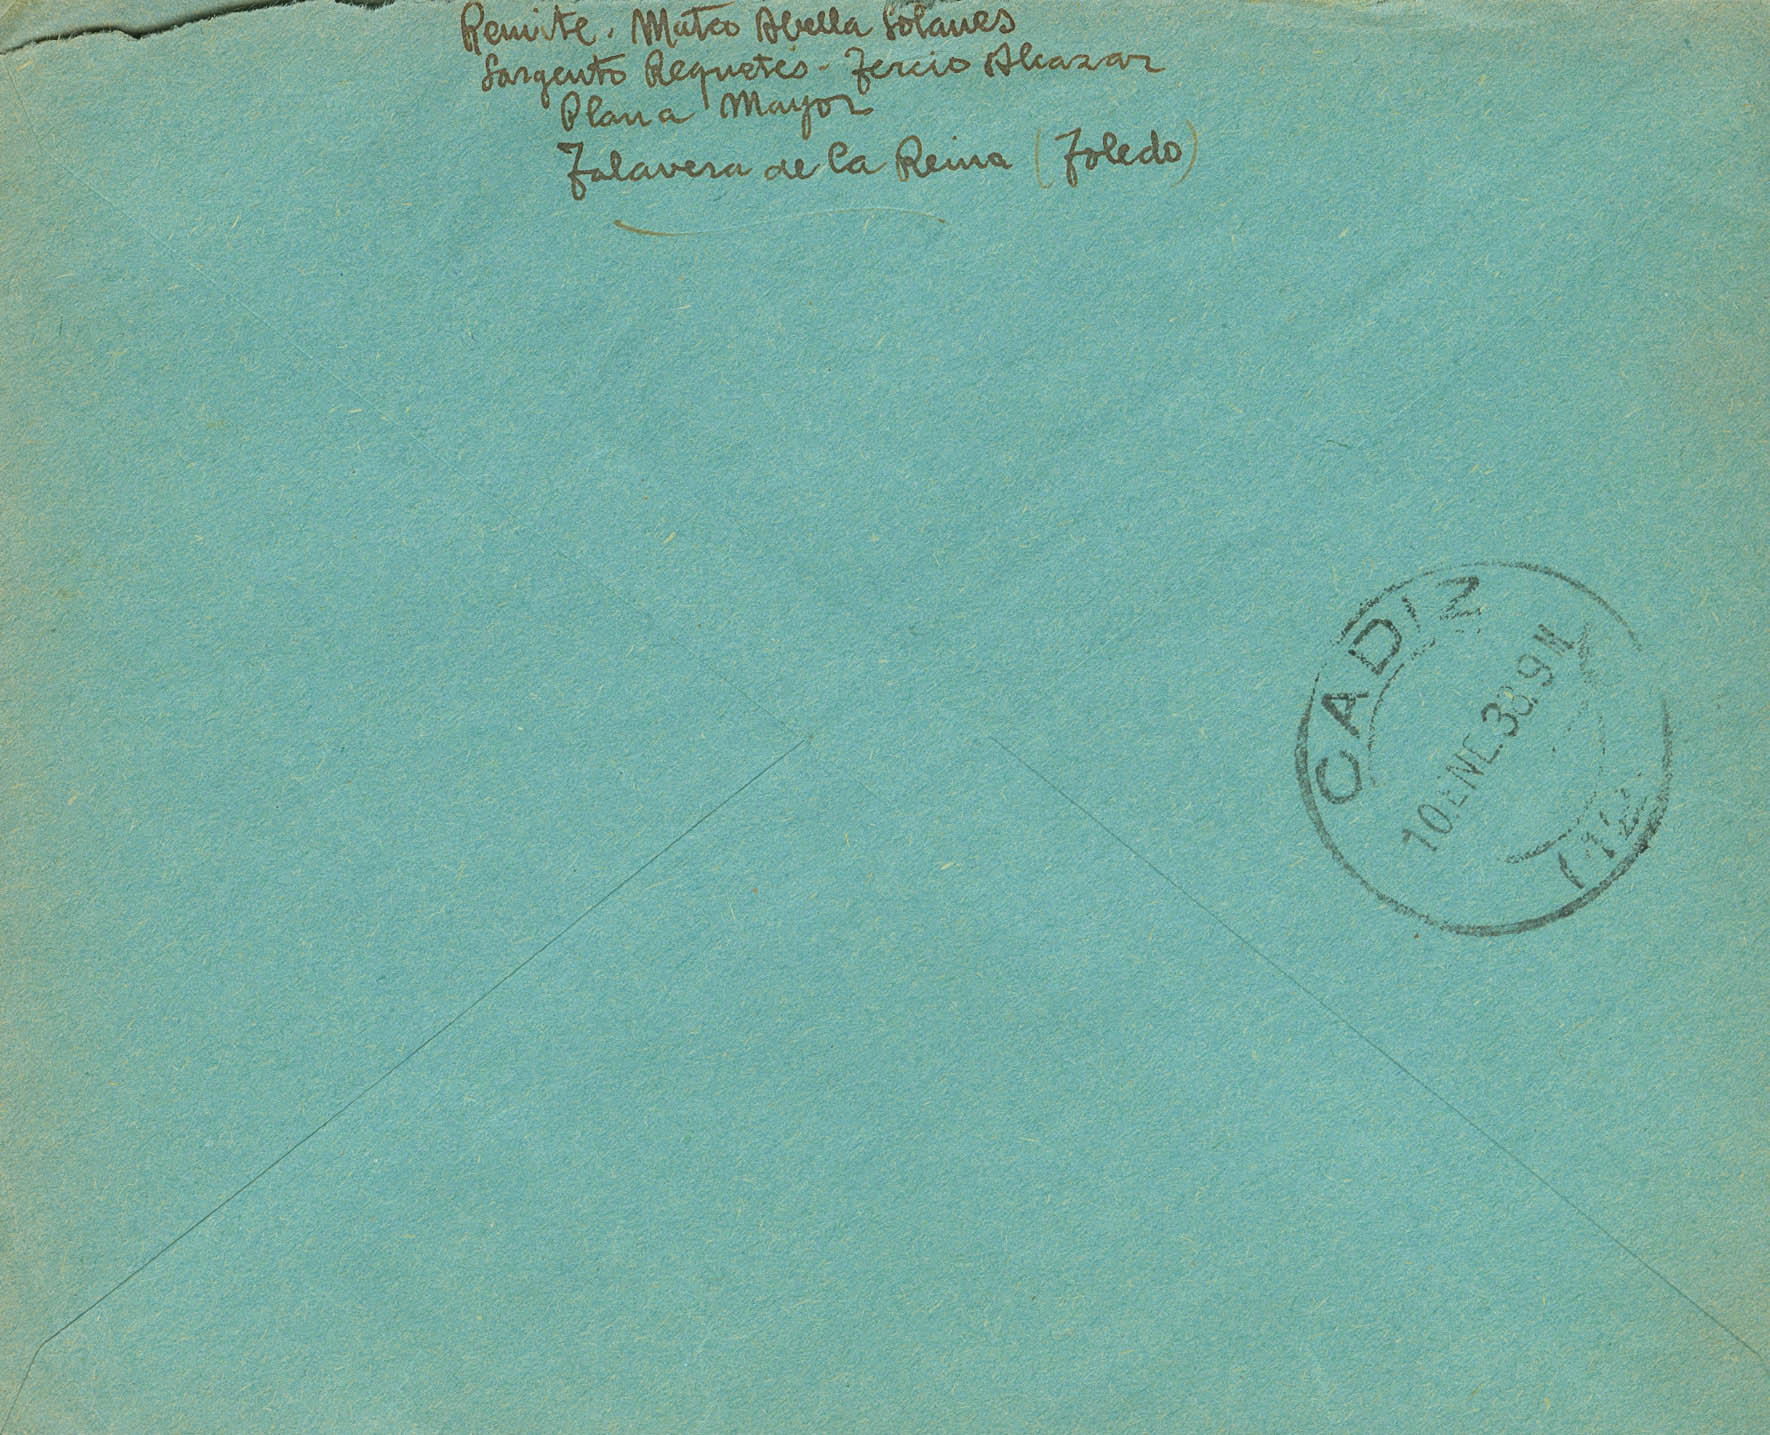 Remite. Mateo Abella Solanes
Sargento Requetés - Tercio Alcazar
Plana Mayor
Talavera de la Reina (Toledo)
CADIZ
10.ENE.38.9M